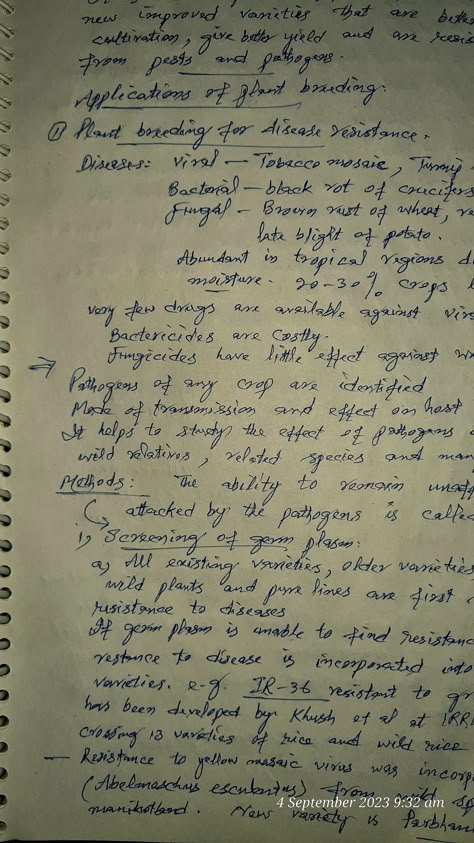 new improved varieties that are bette
cultivation, give better yield and are resis
from pests and pathogens.
Applications of plant breeding:
① Plant breeding for disease resistance.
Diseases: Viral — Tobacco mosaic, Turnip
Bacterial — black rot of crucifers
Fungal — Brown rust of wheat, re
late blight of potato.
Abundant in tropical regions d
moisture. 20-30% crops l
very few drugs are available against vira
Bactericides are costly.
Fungicides have little effect against
⇒ Pathogens of any crop are identified
Mode of transmission and effect on host
It helps to study the effect of pathogens
wild relatives, related species and man
Methods: The ability to remain unaff
attacked by the pathogens is calle
i) Screening of germ plasm:
a) All existing varieties, older varieties
wild plants and pure lines are first
resistance to diseases
If germ plasm is unable to find resistanc
restance to disease is incorporated into
varieties. e.g. IR-36 resistant to gr
has been developed by Khush et al at IRRI
crossing 13 varieties of rice and wild rice
— Resistance to yellow mosaic virus was incorp
(Abelmoschus esculentus) from wild sp
manihotland. New variety is Parbhan
4 September 2023 9:32 am